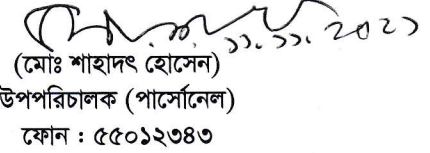 ১১.১১.২০২১
(মোঃ শাহাদৎ হোসেন)
উপপরিচালক (পার্সোনেল)
ফোন : ৫৫০১২৩৪৩